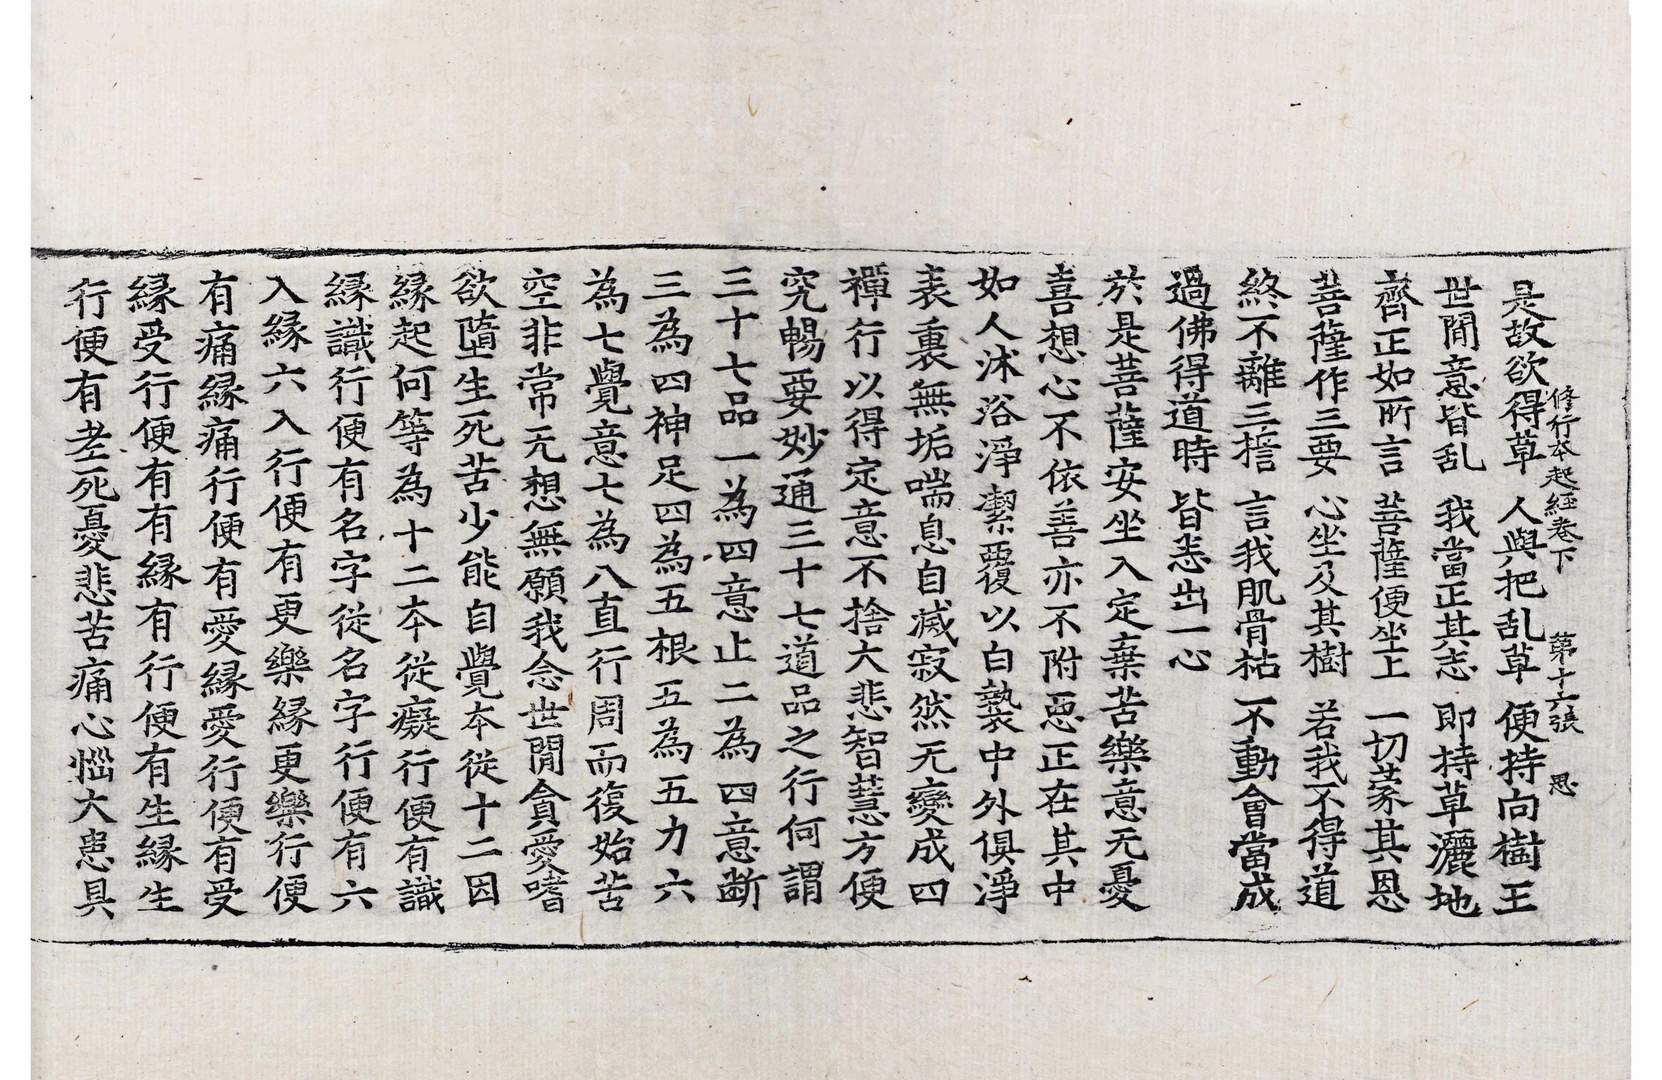 修行本起經卷下 第十六張 思
是故欲得草 人與把乱草 便持向樹王
世閒意皆乱 我當正其志 即持草灑地
齊正如所言 菩薩便坐上 一切䝉其恩
菩薩作三要 心坐及其樹 若我不得道
終不離三誓 言我肌骨枯 不動會當成
過佛得道時 皆悉出一心
於是菩薩安坐入定棄苦樂意无憂
喜想心不依善亦不附惡正在其中
如人沐浴淨潔覆以白㲲中外俱淨
表裏無垢喘息自滅寂然无變成四
禪行以得定意不捨大悲智慧方便
究暢要妙通三十七道品之行何謂
三十七品一為四意止二為四意断
三為四神足四為五根五為五力六
為七覺意七為八直行周而復始苦
空非常无想無願我念世閒貪愛嗜
欲墮生死苦少能自覺本從十二因
緣起何等為十二本從癡行便有識
緣識行便有名字從名字行便有六
入緣六入行便有更樂緣更樂行便
有痛緣痛行便有愛緣愛行便有受
緣受行便有有緣有行便有生緣生
行便有老死憂悲苦痛心惱大患具